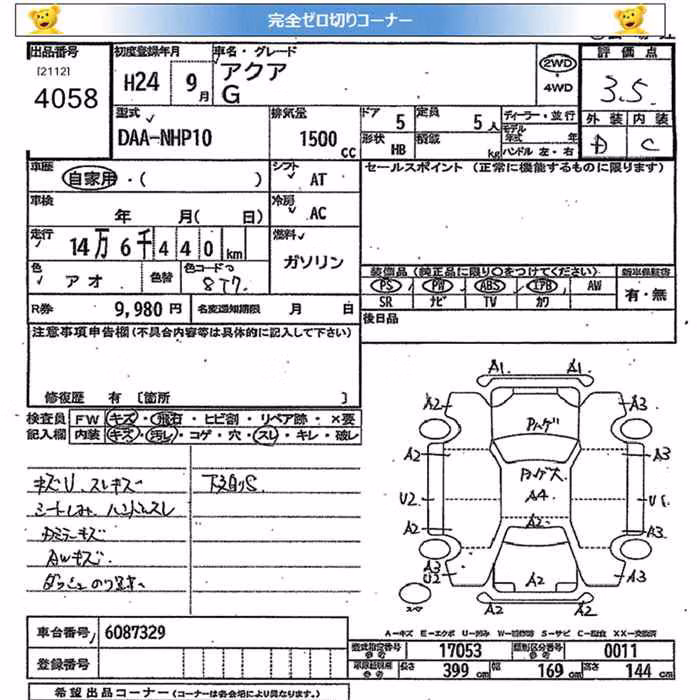 完全ゼロ切りコーナー
出品番号
[2112]
4058
初度登録年月
H24 9月
車名・グレード
アクア
G
2WD
4WD
評価点
3.5
外装 内装
D C
型式
DAA-NHP10
排気量
1500 cc
ドア 5
定員 5人
形状 HB
積載 kg
ディーラー・並行
モデル年式 年
ハンドル 左・右
車歴
自家用・( )
シフト AT
セールスポイント (正常に機能するものに限ります)
車検
年 月( 日)
冷房 AC
走行
14万6千440km
燃料
ガソリン
色 アオ
色替
色コードNo
8T7
装備品(純正品に限り○をつけてください)
新車保証書
PS PW ABS IPB AW
SR ナビ TV カワ
有・無
R券 9,980円
名変通知期限 月 日
後日品
注意事項申告欄(不具合内容等は具体的に記入して下さい)
修復歴 有 [箇所 ]
検査員記入欄
FW キズ・飛石・ヒビ割・リペア跡・×要
内装 キズ・汚レ・コゲ・穴・スレ・キレ・破レ
キズU、スレキズ
下廻りS
シートしみ、ハンドルスレ
AWキズ
A1 A1
A2 A3
A2 A3
U2
A2 A3
A3
U2 A3
A4
A2
A2
A2 A2
A-キズ E-エクボ U-凹み W-補修跡 S-サビ C-腐食 XX-交換済
車台番号 6087329
登録番号
型式指定番号 17053
類別区分番号 0011
長さ 399cm
幅 169cm
高さ 144cm
希望出品コーナー (コーナーは各会場により異なります。)